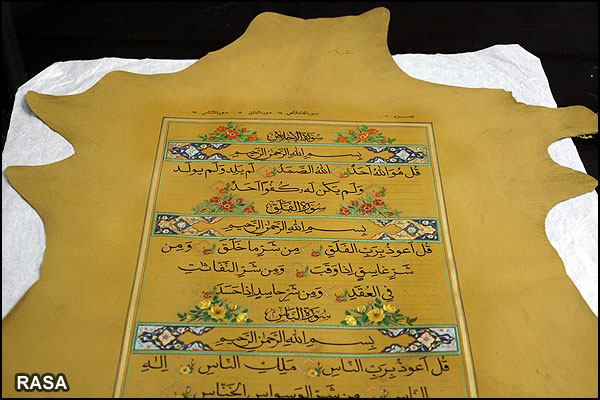 سورة الاخلاص سورة الفلق سورة الناس
سورة الاخلاص
بسم الله الرحمن الرحيم
قل هو الله احد الله الصمد لم يلد ولم يولد
ولم يكن له كفوا احد
سورة الفلق
بسم الله الرحمن الرحيم
قل اعوذ برب الفلق من شر ما خلق ومن
شر غاسق اذا وقب ومن شر النفاثات
في العقد ومن شر حاسد اذا حسد
سورة الناس
بسم الله الرحمن الرحيم
قل اعوذ برب الناس ملك الناس اله
الناس من شر الوسواس الخناس
RASA